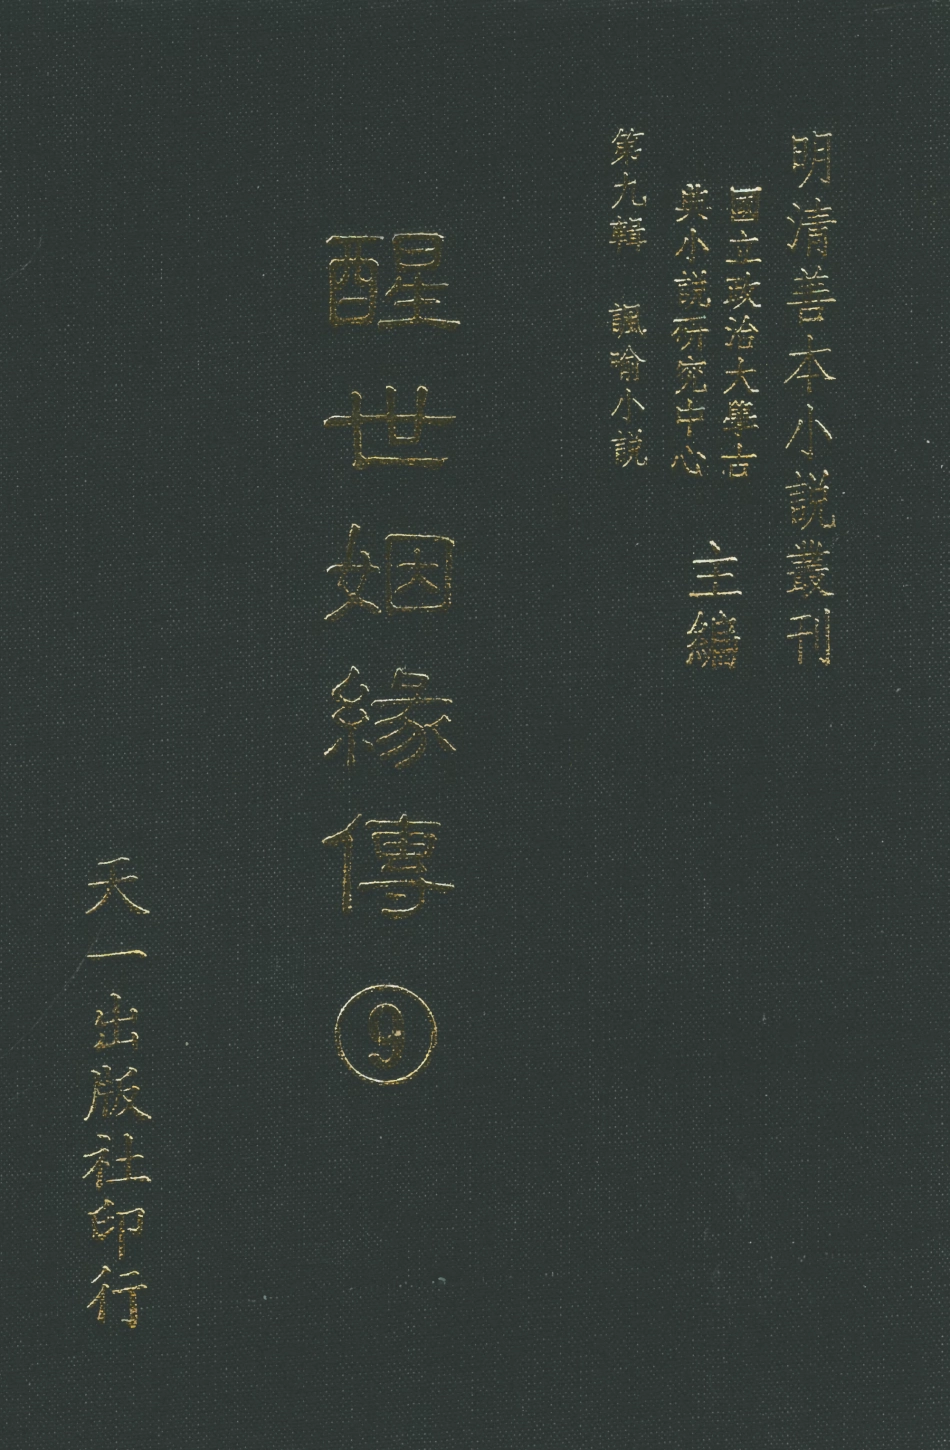 明清善本小説叢刊
國立政治大學古
典小說研究中心
主編
第九輯 諷喻小説
醒世姻緣傳⑨
天一出版社印行